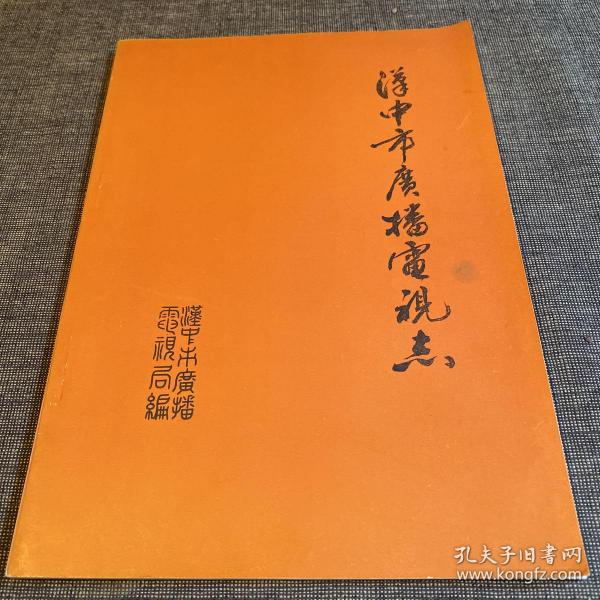 漢中市廣播電視志
漢中市廣播
電視局編
孔夫子旧書网
www.kongfz.com